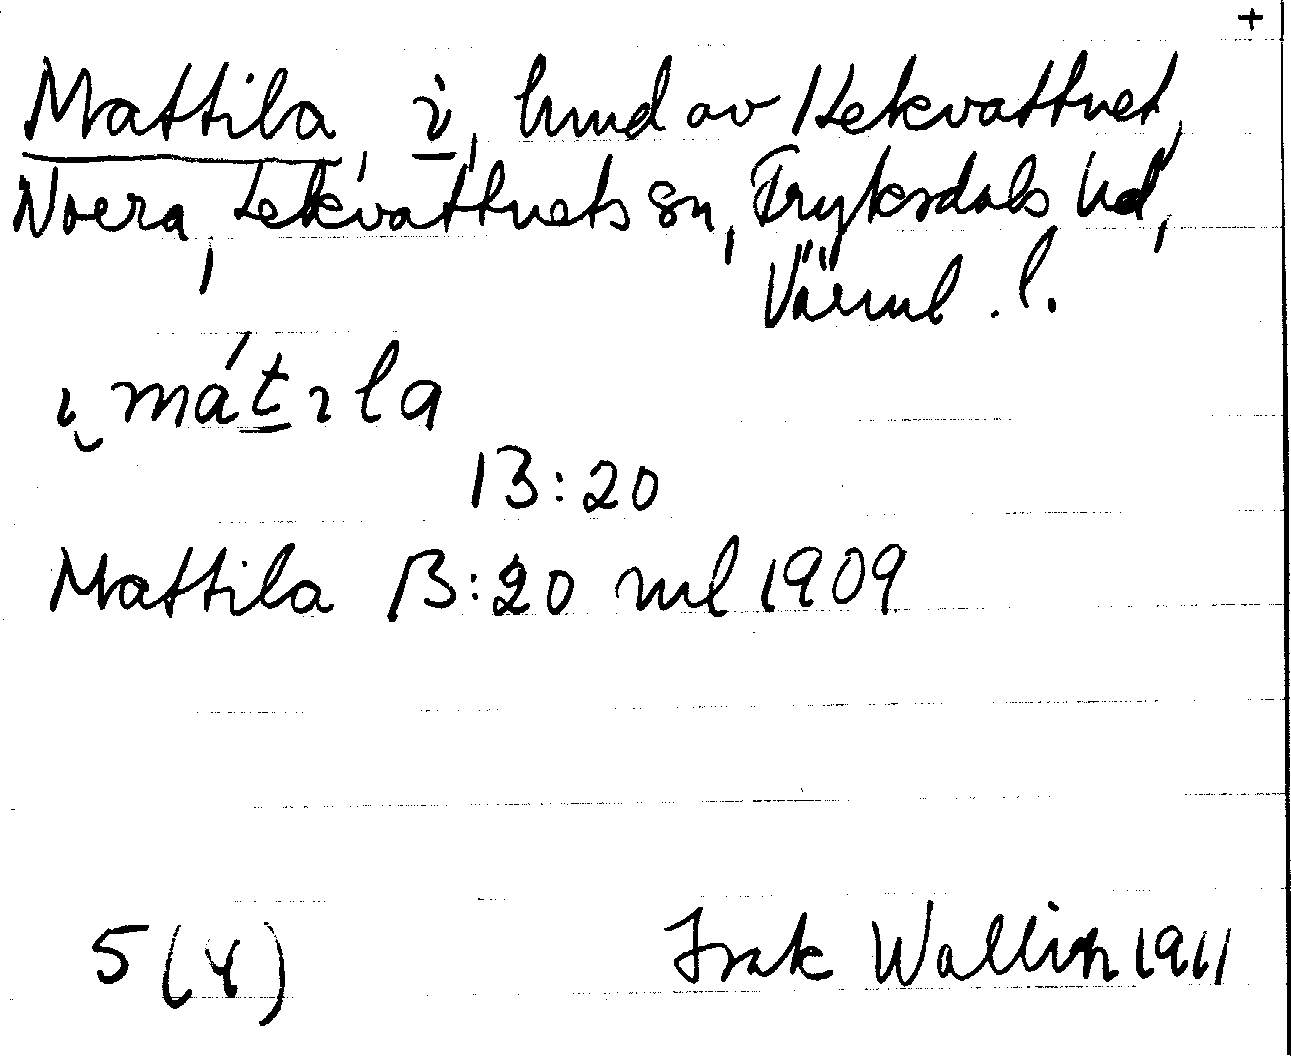 +
Mattila, i, hmd av Lekvattnet,
Norra, Lekvattnets sn, Fryksdals hd,
Värml. l.
ı̮ mát̲ıla
13:20
Mattila 13:20 ml 1909
5 (4)
Isak Wallin 1911